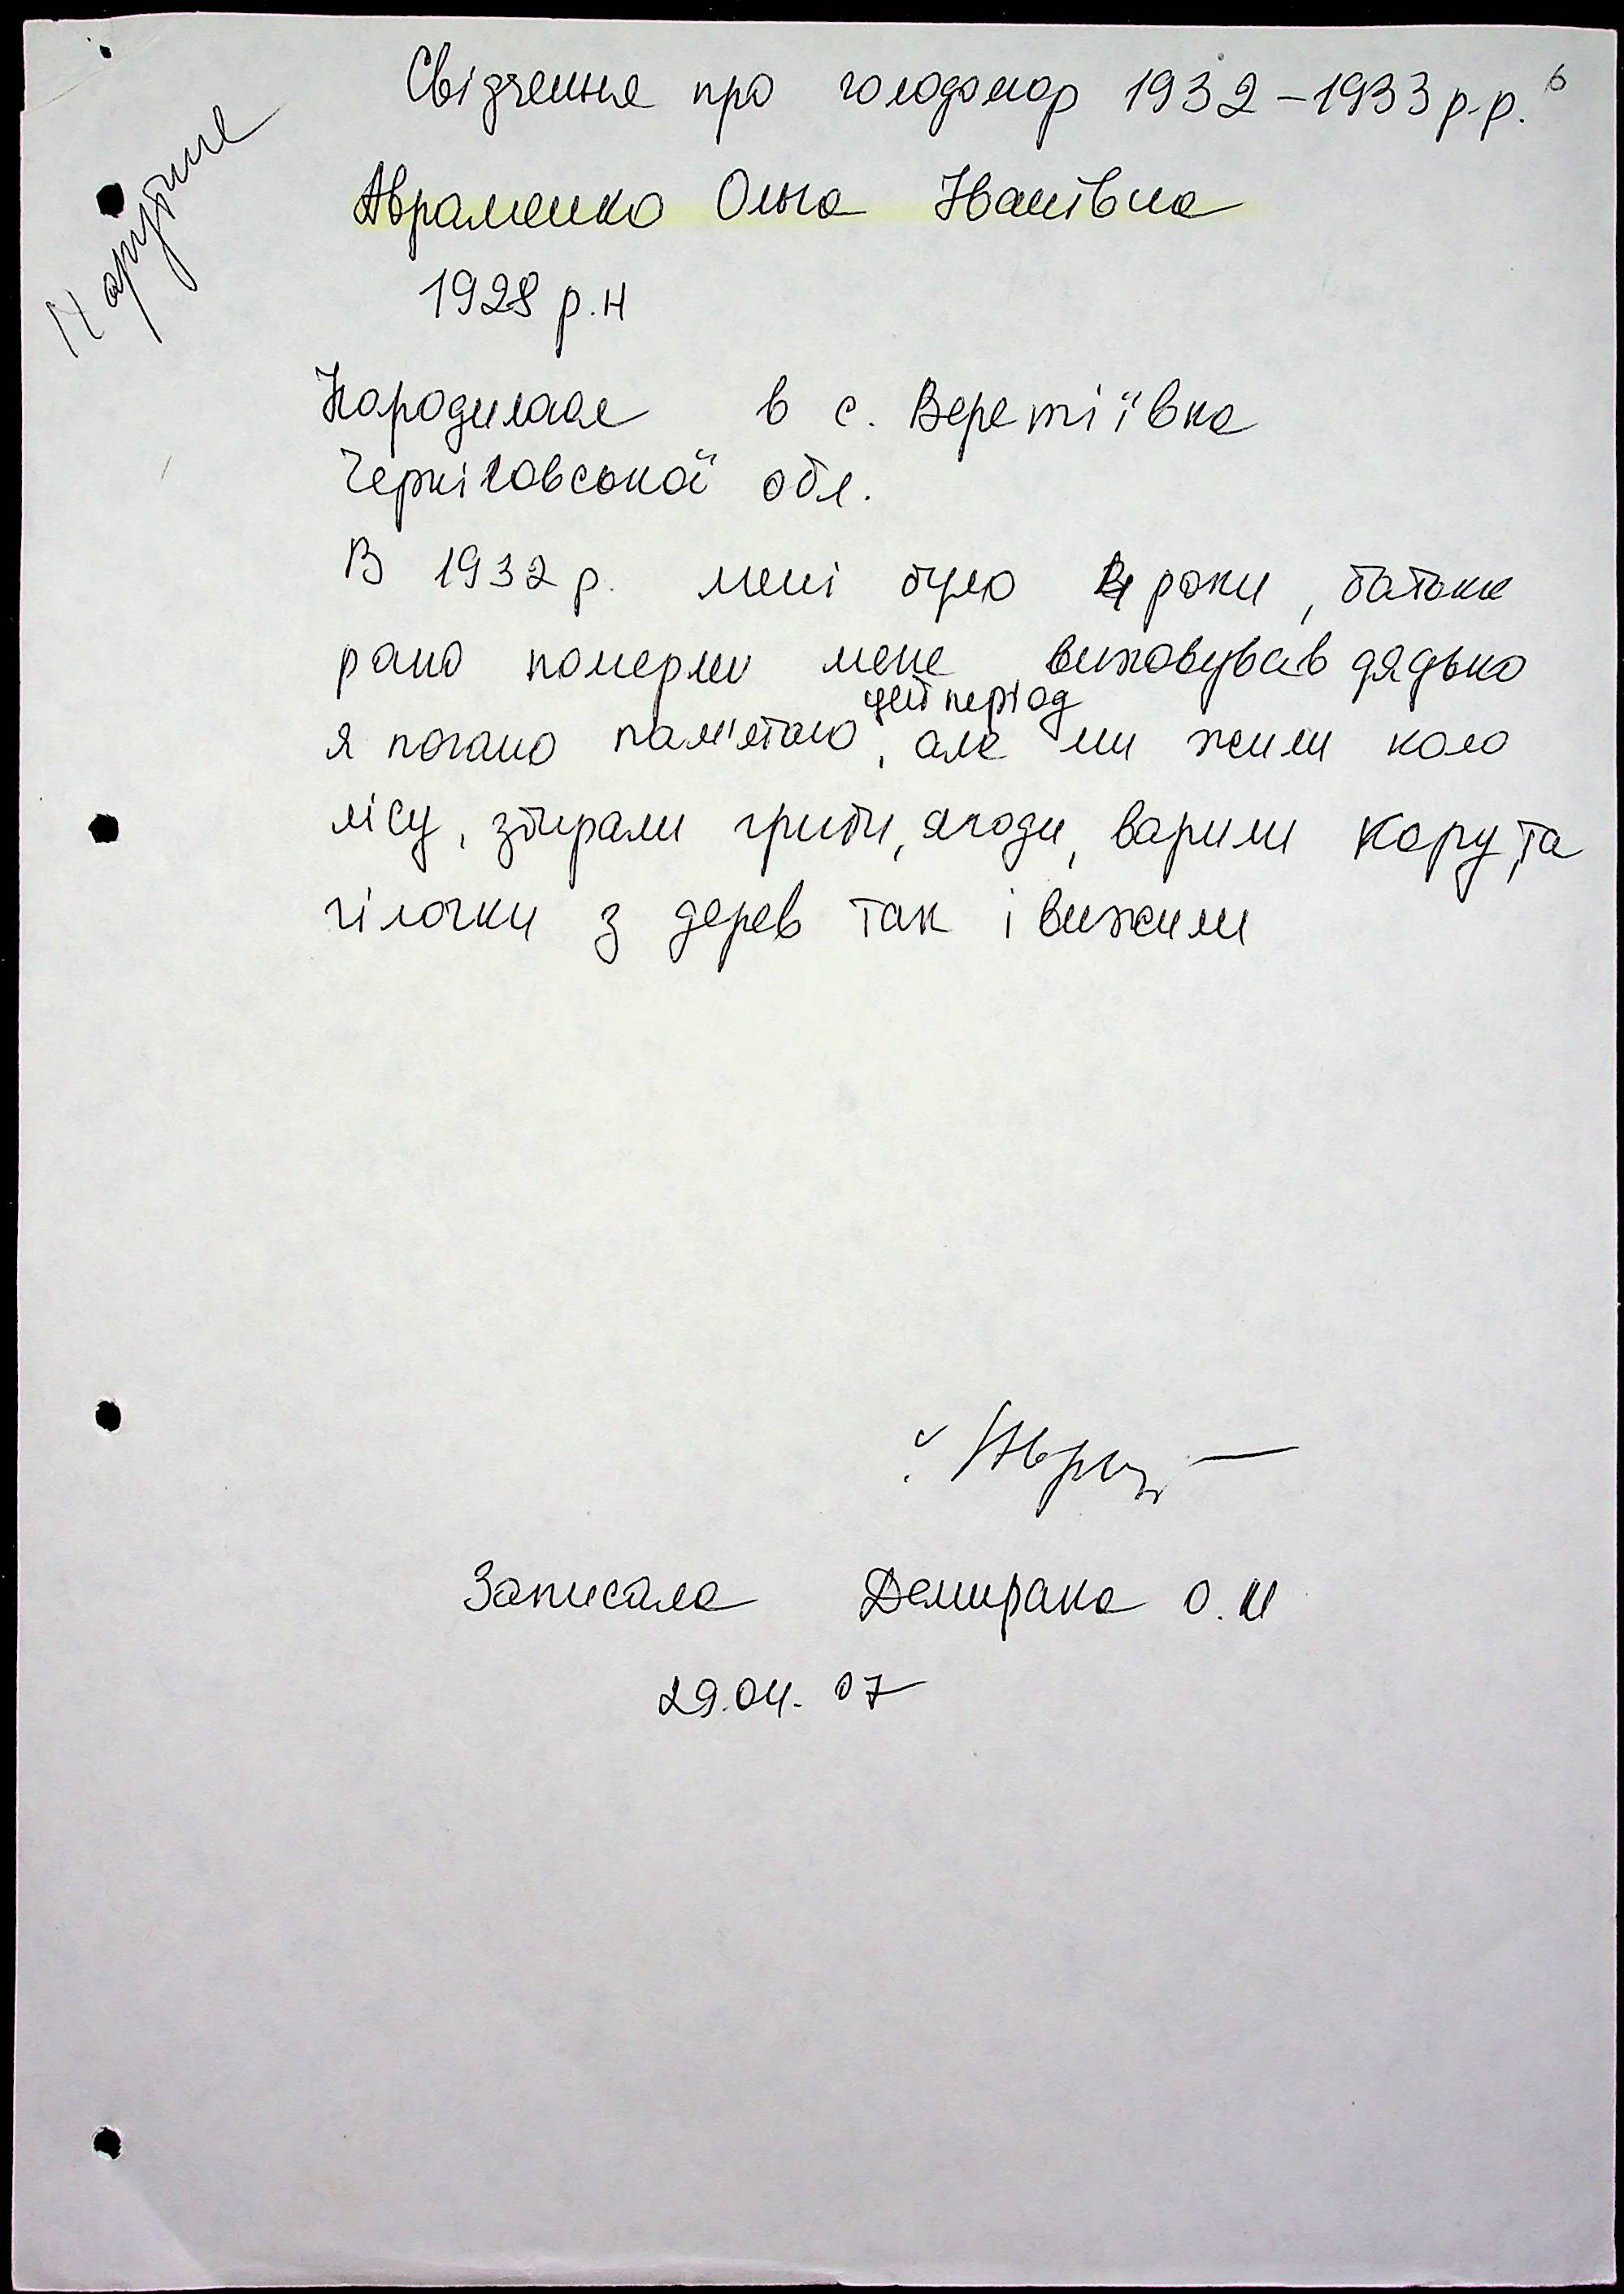 Свідчення про голодомор 1932-1933 р.р. 6
Нарутине
Авраменко Ольга Іванівна
1928 р.н
Народилася в с. Веретіївка
Черніговської обл.
В 1932 р. мені було 4 роки, батьки
рано померли мене виховував дядько
я погано пам'ятаю цей період, але ми жили коло
лісу, збирали гриби, ягоди, варили кору, та
гілочки з дерев так і вижили
Записала Демирака О.И
29.04.07